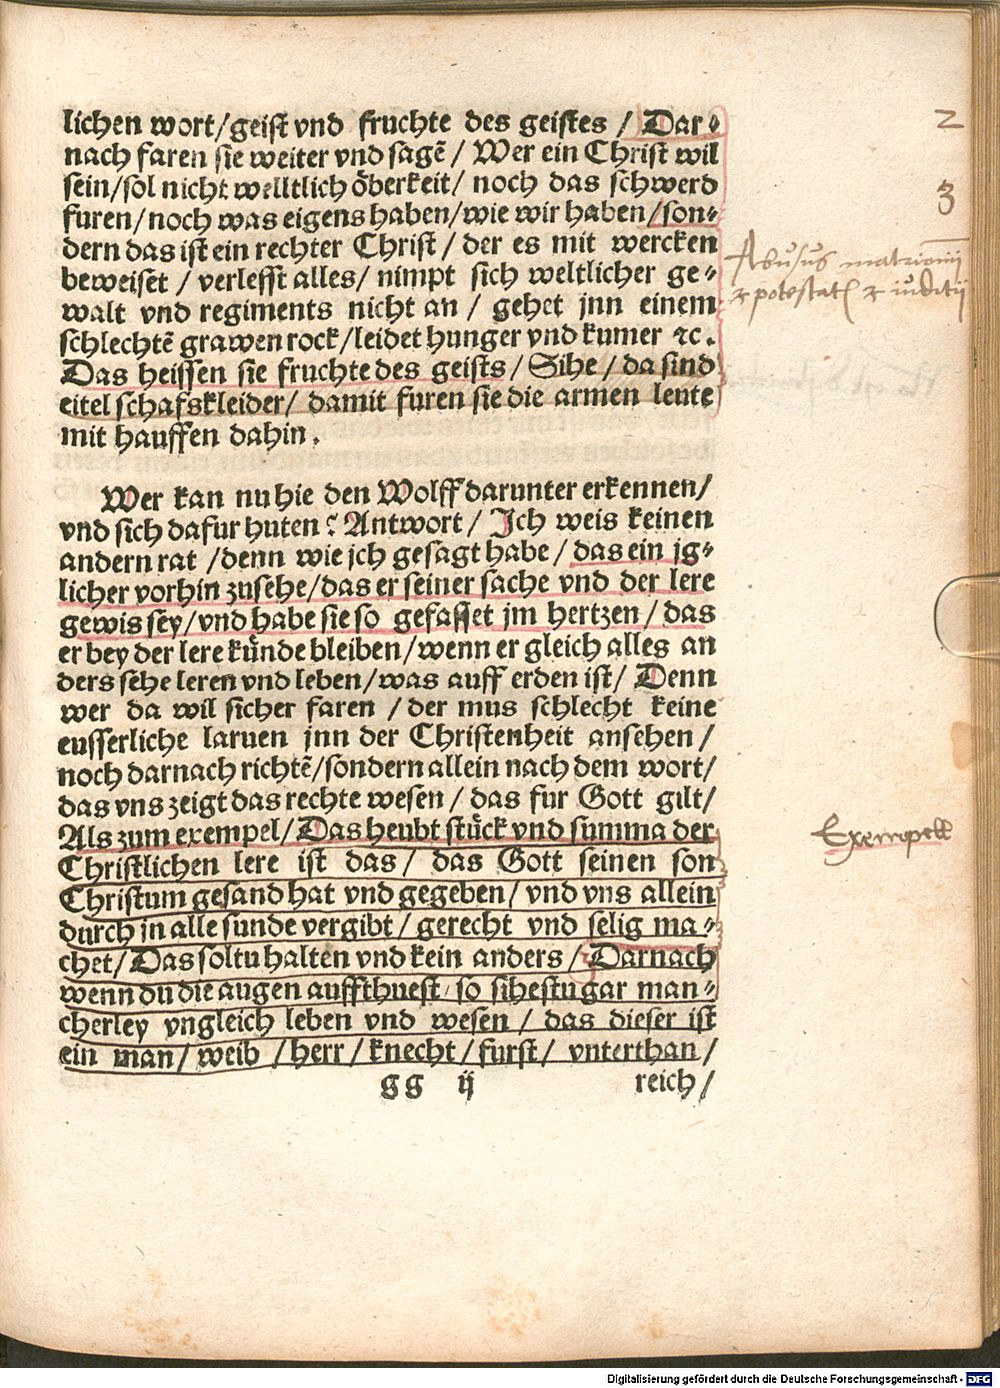 lichen wort/geist vnd fruchte des geistes / Dar⸗
nach faren sie weiter vnd sagē / Wer ein Christ wil
sein/sol nicht welltlich öberkeit/ noch das schwerd
furen/noch was eigens haben/wie wir haben/son⸗
dern das ist ein rechter Christ / der es mit wercken
beweiset / verlesst alles/ nimpt sich weltlicher ge⸗
walt vnd regiments nicht an / gehet jnn einem
schlechtē grawen rock/leidet hunger vnd kumer ꝛc.
Das heissen sie fruchte des geists / Sihe / da sind
eitel schafskleider/ damit furen sie die armen leute
mit hauffen dahin.
Wer kan nu hie den Wolff darunter erkennen/
vnd sich dafur huten? Antwort / Ich weis keinen
andern rat /denn wie jch gesagt habe / das ein jg⸗
licher vorhin zusehe/das er seiner sache vnd der lere
gewis sey/vnd habe sie so gefasset jm hertzen/ das
er bey der lere künde bleiben/wenn er gleich alles an
ders sehe leren vnd leben/was auff erden ist/ Denn
wer da wil sicher faren / der mus schlecht keine
eusserliche laruen jnn der Christenheit ansehen /
noch darnach richtē/sondern allein nach dem wort/
das vns zeigt das rechte wesen / das fur Gott gilt/
Als zum exempel/ Das heubt stück vnd summa der
Christlichen lere ist das/ das Gott seinen son
Christum gesand hat vnd gegeben/ vnd vns allein
durch jn alle sunde vergibt/ gerecht vnd selig ma⸗
chet/Das soltu halten vnd kein anders / Darnach
wenn du die augen auffthuest/ so sihestu gar man⸗
cherley vngleich leben vnd wesen / das dieser ist
ein man/ weib /herr /knecht/furst/ vnterthan/
gg ij reich/
2
3
Abusus matrimonii
et potestat et iuditii
Exempell
Digitalisierung gefördert durch die Deutsche Forschungsgemeinschaft - DFG